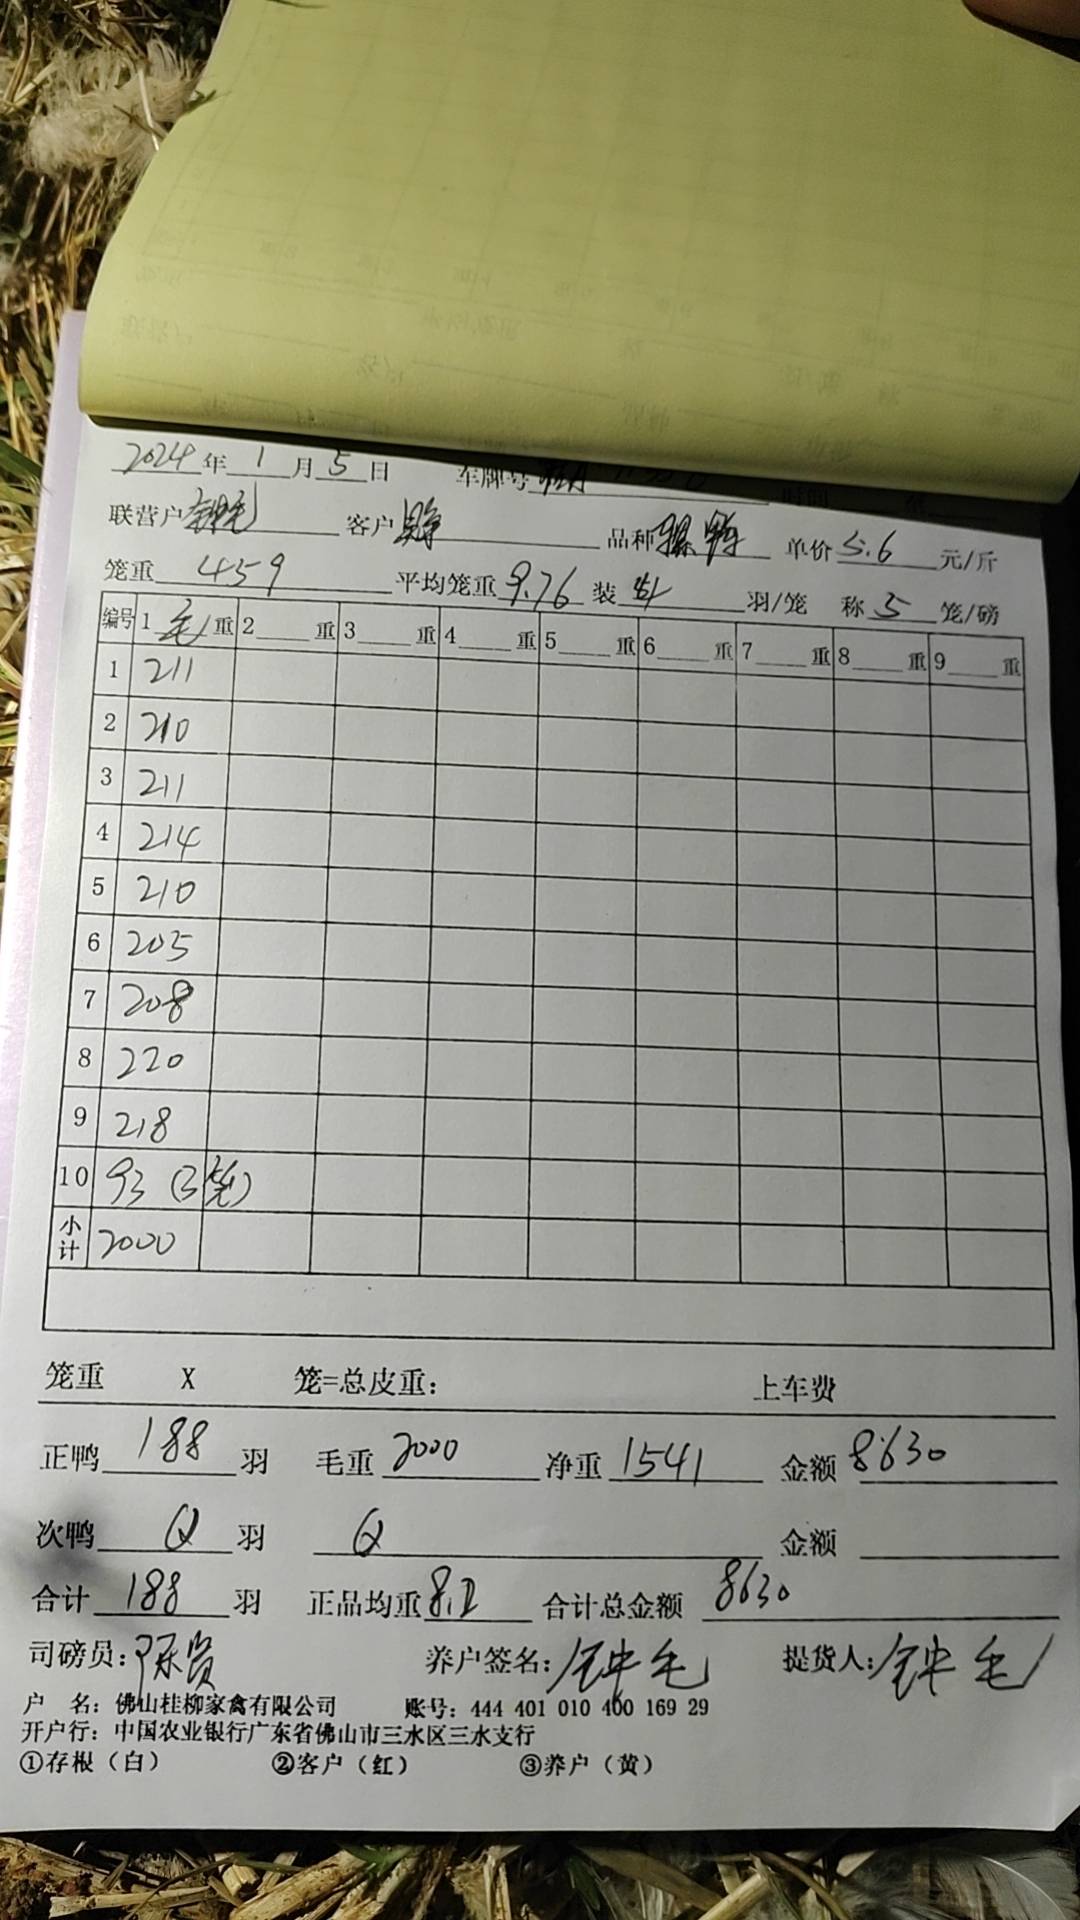 2024年1月5日 车牌号
联营户 钟毛 客户 品种 骡鸭 单价 5.6 元/斤
笼重 459 平均笼重 9.76 装 4 羽/笼 称 5 笼/磅
编号 1 毛 重 2 重 3 重 4 重 5 重 6 重 7 重 8 重 9 重
1 211
2 210
3 211
4 214
5 210
6 205
7 208
8 220
9 218
10 93 (3笼)
小计 2000
笼重 X 笼=总皮重： 上车费
正鸭 188 羽 毛重 2000 净重 1541 金额 8630
次鸭 0 羽 0 金额
合计 188 羽 正品均重 8.2 合计总金额 8630
司磅员：陈贤 养户签名：钟毛 提货人：钟毛
户 名：佛山桂柳家禽有限公司 账号：444 401 010 400 169 29
开户行：中国农业银行广东省佛山市三水区三水支行
①存根（白） ②客户（红） ③养户（黄）